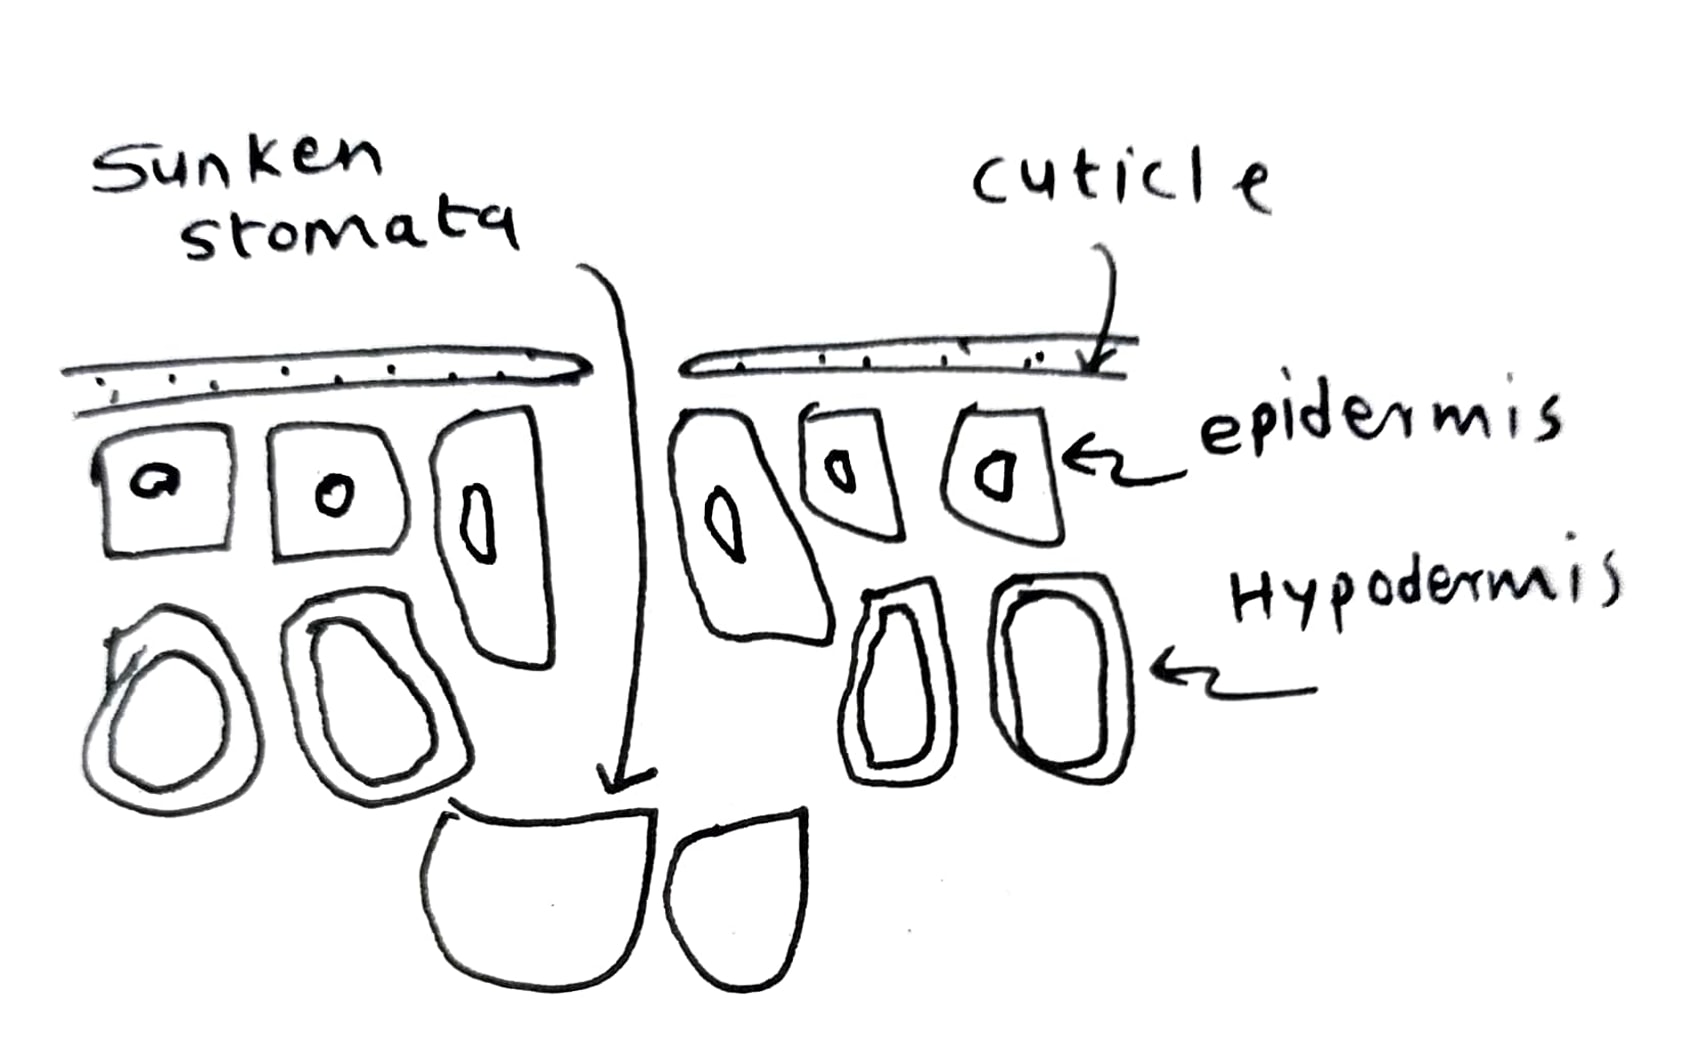 Sunken
stomata
cuticle
epidermis
Hypodermis